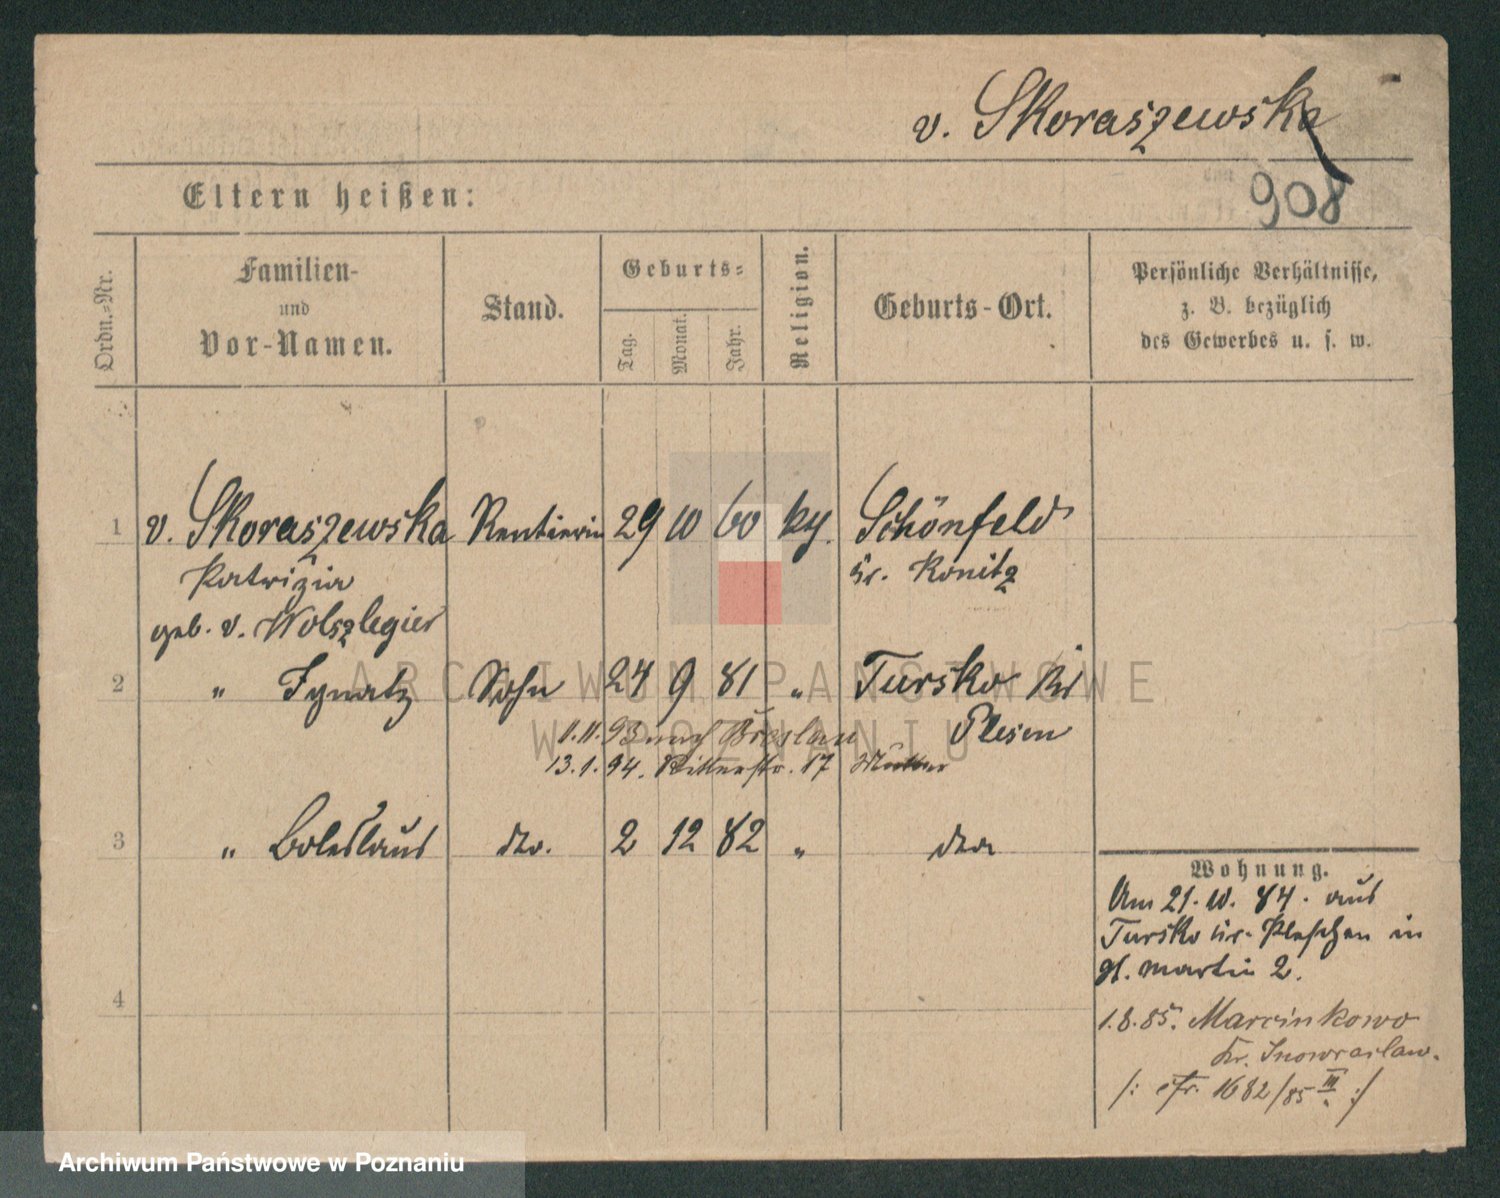 v. Skoraszewska
908
Eltern heißen:
Ordn.-Nr.
Familien-
und
Vor-Namen.
Stand.
Geburts-
Tag.
Monat.
Jahr.
Religion.
Geburts-Ort.
Persönliche Verhältnisse,
z. B. bezüglich
des Gewerbes u. s. w.
1 v. Skoraszewska Rentierin 29 10 60 Schönfeld
Patrizia Kr. Konitz
geb. v. Wolszlegier
2 " Ignatz Sohn 24 9 81 " Tursko Kr
11.11.93 nach Breslau Plesen
13.1.94. Ritterstr. 17 Mutter
3 " Boleslaus dto. 2 12 82 " dto
4
Wohnung.
Am 21.10.84. aus
Tursko Kr. Pleschen in
St. Martin 2.
1.8.85. Marcinkowo
Kr. Inowraclaw.
1682/85 III :/
ARCHIWUM PAŃSTWOWE
W POZNANIU
Archiwum Państwowe w Poznaniu